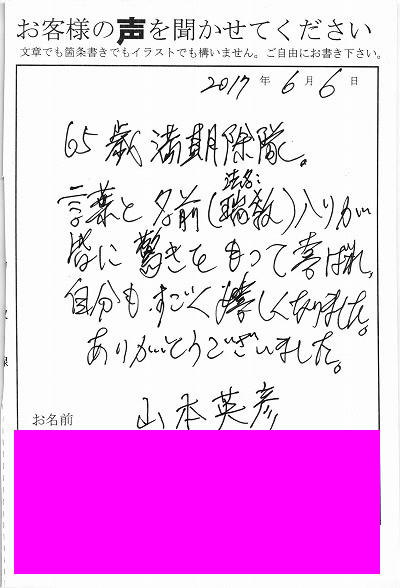 お客様の声を聞かせてください
文章でも箇条書きでもイラストでも構いません。ご自由にお書き下さい。
2017年6月6日
65歳満期除隊。
法名:
言葉と名前(瑞敎)入りが
皆に驚きをもって喜ばれ,
自分もすごく嬉しくなりました。
ありがとうございました。
お名前 山本英彦